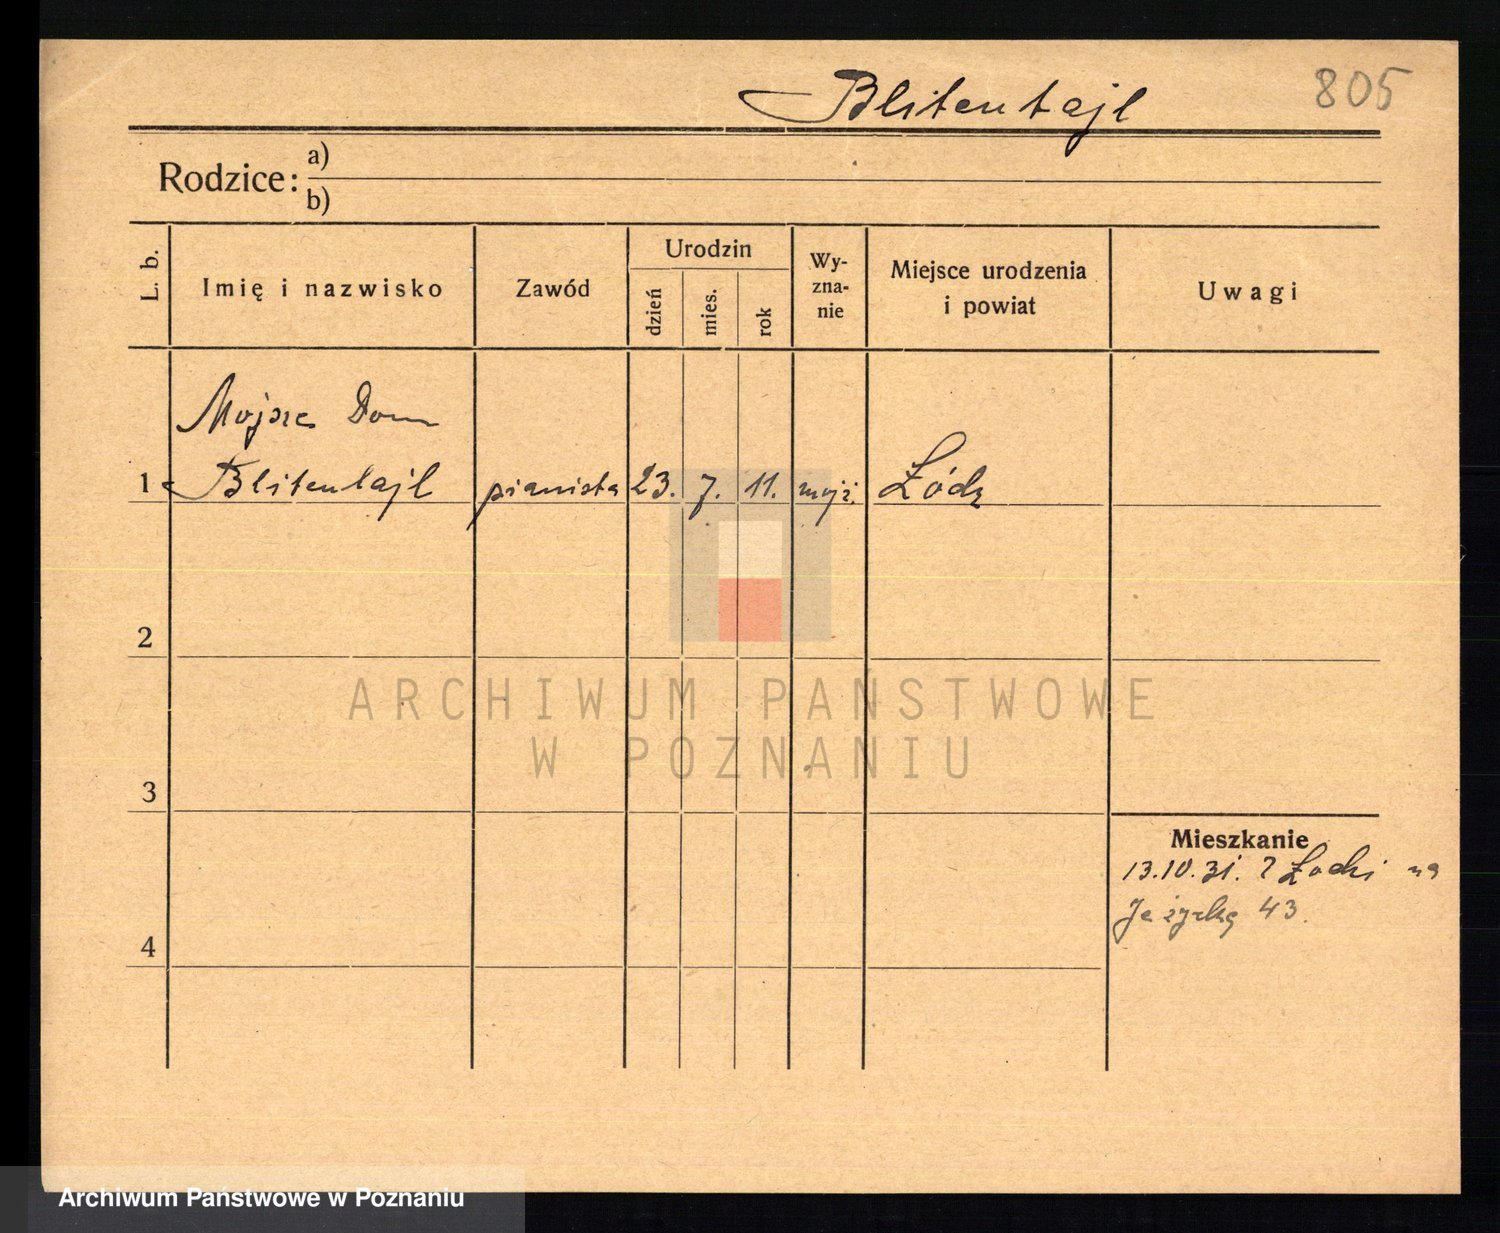 Blitentajl 805
Rodzice: a)
b)
L. b.
Imię i nazwisko
Zawód
Urodzin
dzień
mies.
rok
Wy-
zna-
nie
Miejsce urodzenia
i powiat
Uwagi
Mojsze
1 Blitentajl pianista 23. 7. 11. mojż. Łódź
2
3
4
Mieszkanie
13.10.31. z Łodzi na
43.
ARCHIWUM PAŃSTWOWE
W POZNANIU
Archiwum Państwowe w Poznaniu